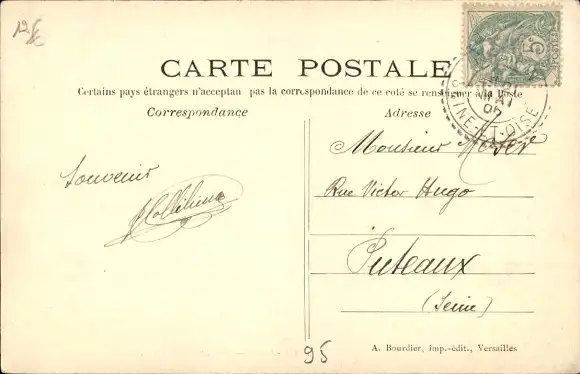 CARTE POSTALE
Certains pays étrangers n'acceptan pas la correspondance de ce coté se renseigner à la Poste
Correspondance
Adresse
Souvenir
Monsieur
Rue Victor Hugo
Puteaux
(Seine)
95
A. Bourdier, imp.-édit., Versailles
5c
POSTES
MAI
06
SEINE-ET-OISE